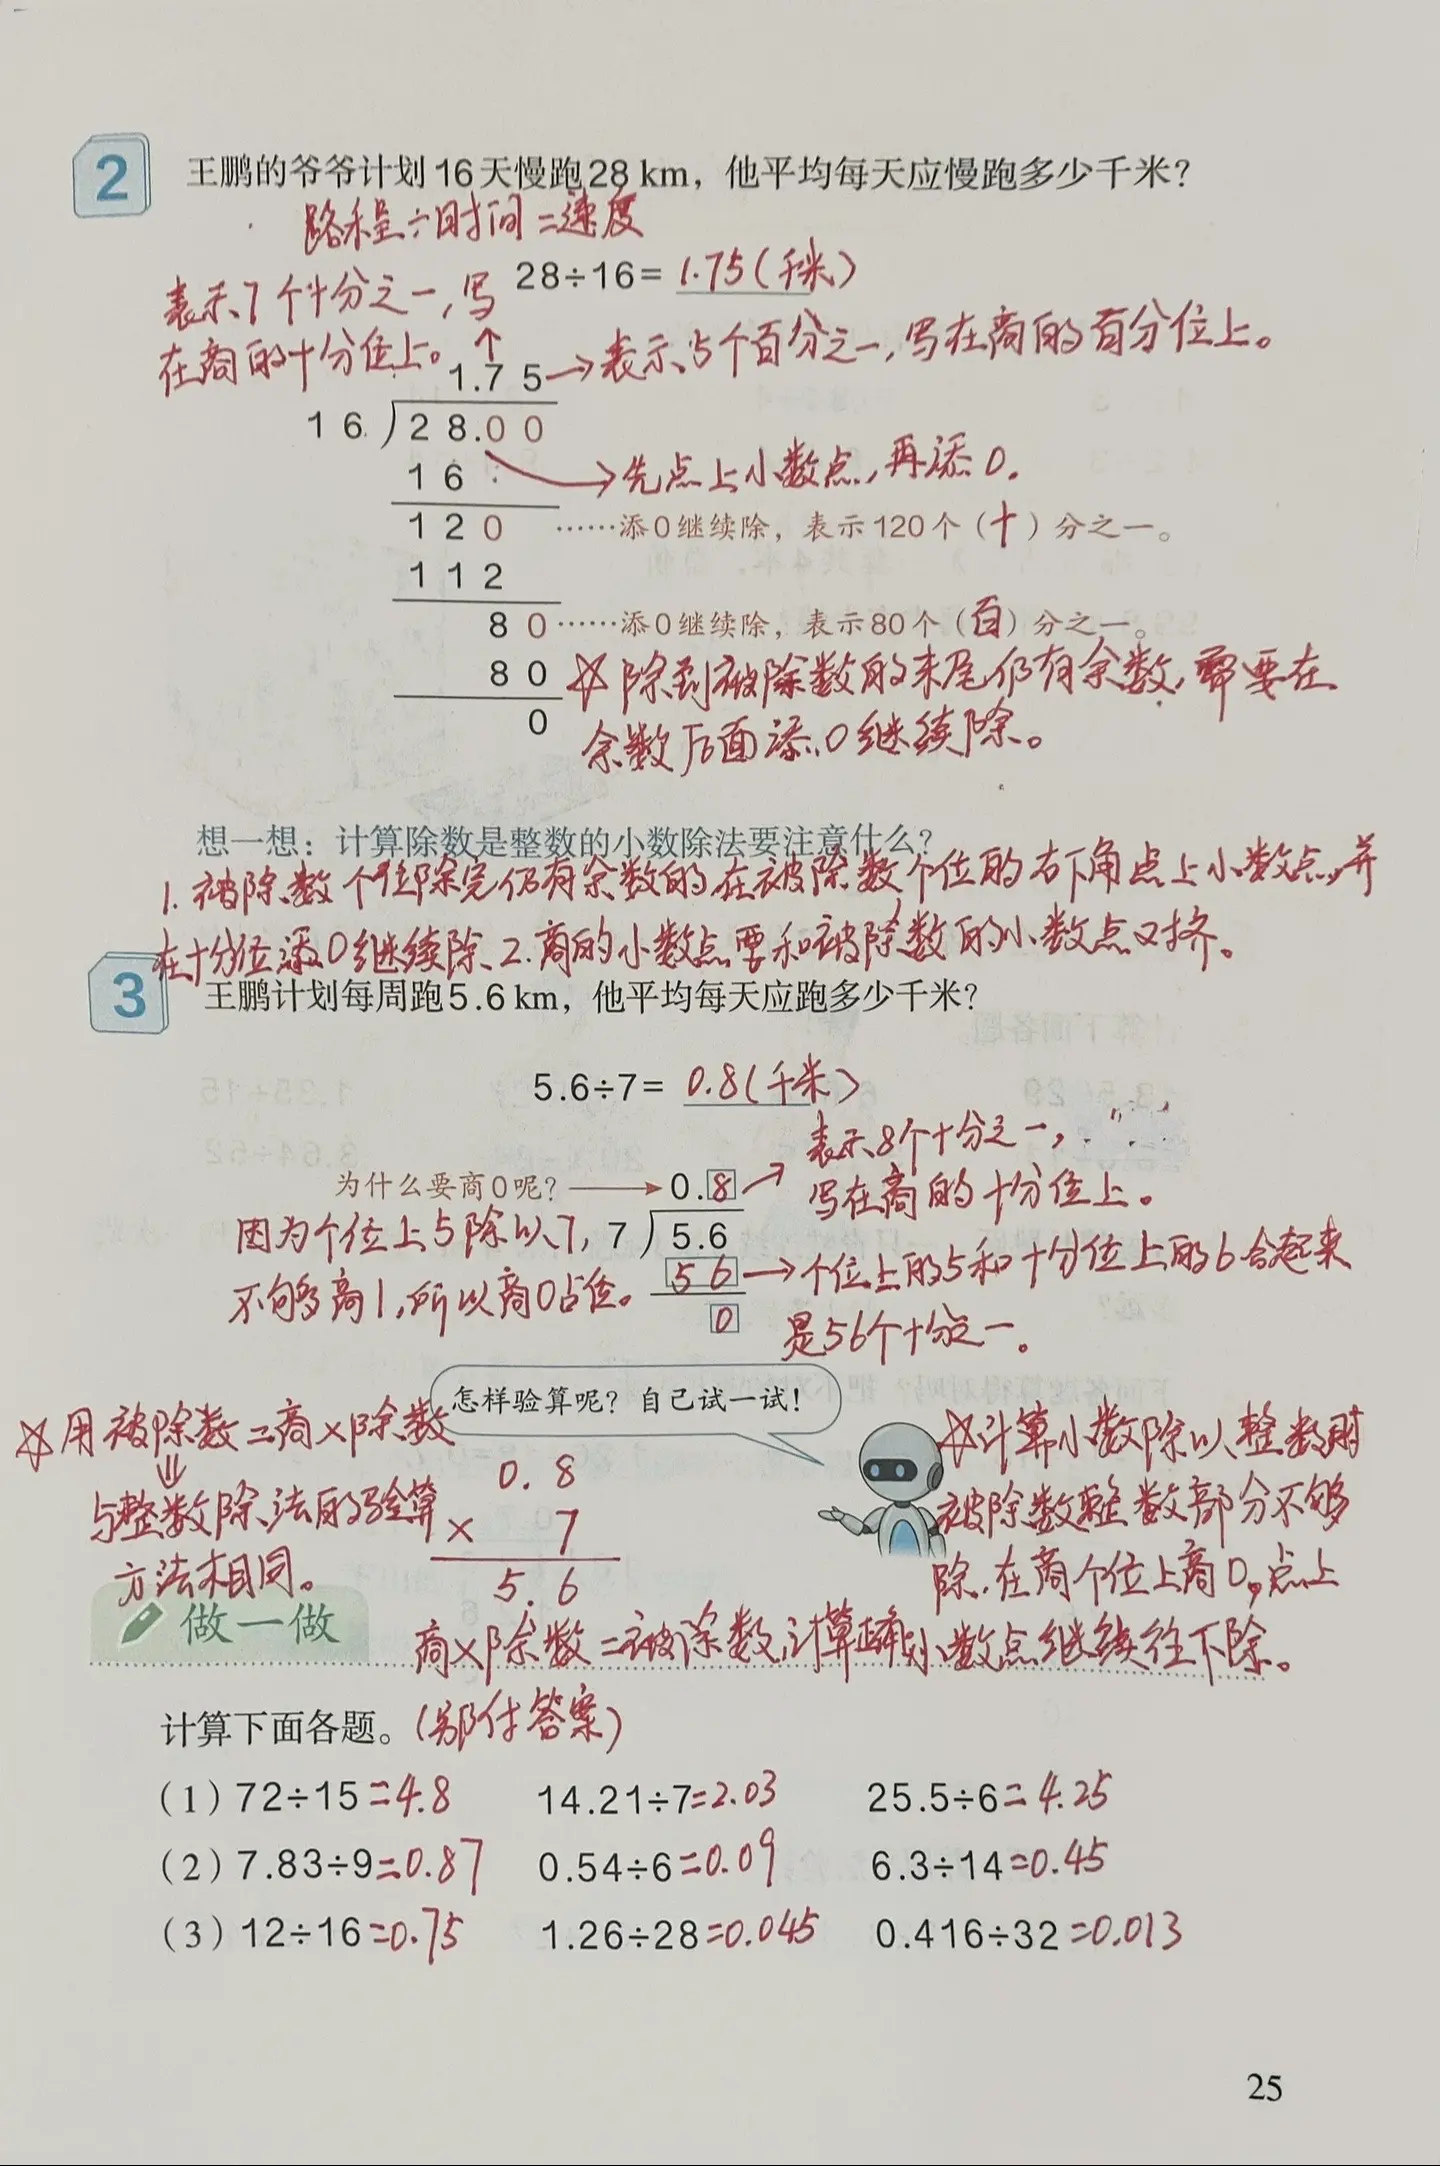 2 王鹏的爷爷计划16天慢跑28 km，他平均每天应慢跑多少千米？
路程÷时间=速度
28÷16= 1.75(千米)
表示7个十分之一,写
在商的十分位上。
1.75→表示5个百分之一,写在商的百分位上。
16 28.00
16 →先点上小数点,再添0.
120 ……添0继续除，表示120个（十）分之一。
112
80 ……添0继续除，表示80个（百）分之一。
80 ☆除到被除数的末尾仍有余数,要在
0 余数后面添0继续除。
想一想：计算除数是整数的小数除法要注意什么？
1.被除数个位除完仍有余数的,在被除数个位的右下角点上小数点,并
在十分位添0继续除、2.商的小数点要和被除数的小数点对齐。
3 王鹏计划每周跑5.6 km，他平均每天应跑多少千米？
5.6÷7= 0.8(千米)
表示8个十分之一,
写在商的十分位上。
为什么要商0呢？→ 0.8
因为个位上5除以7, 7 5.6
不够商1,所以商0占位。
56→个位上的5和十分位上的6合起来
是56个十分之一。
0
怎样验算呢？自己试一试！
☆用被除数=商×除数
与整数除法的验算
方法相同。
0.8
× 7
5.6
商×除数=被除数,计算正确
☆计算小数除以整数时
被除数整数部分不够
除,在商个位上商0,点上
小数点继续往下除。
做一做
计算下面各题。(部付答案)
(1) 72÷15=4.8 14.21÷7=2.03 25.5÷6=4.25
(2) 7.83÷9=0.87 0.54÷6=0.09 6.3÷14=0.45
(3) 12÷16=0.75 1.26÷28=0.045 0.416÷32=0.013
25